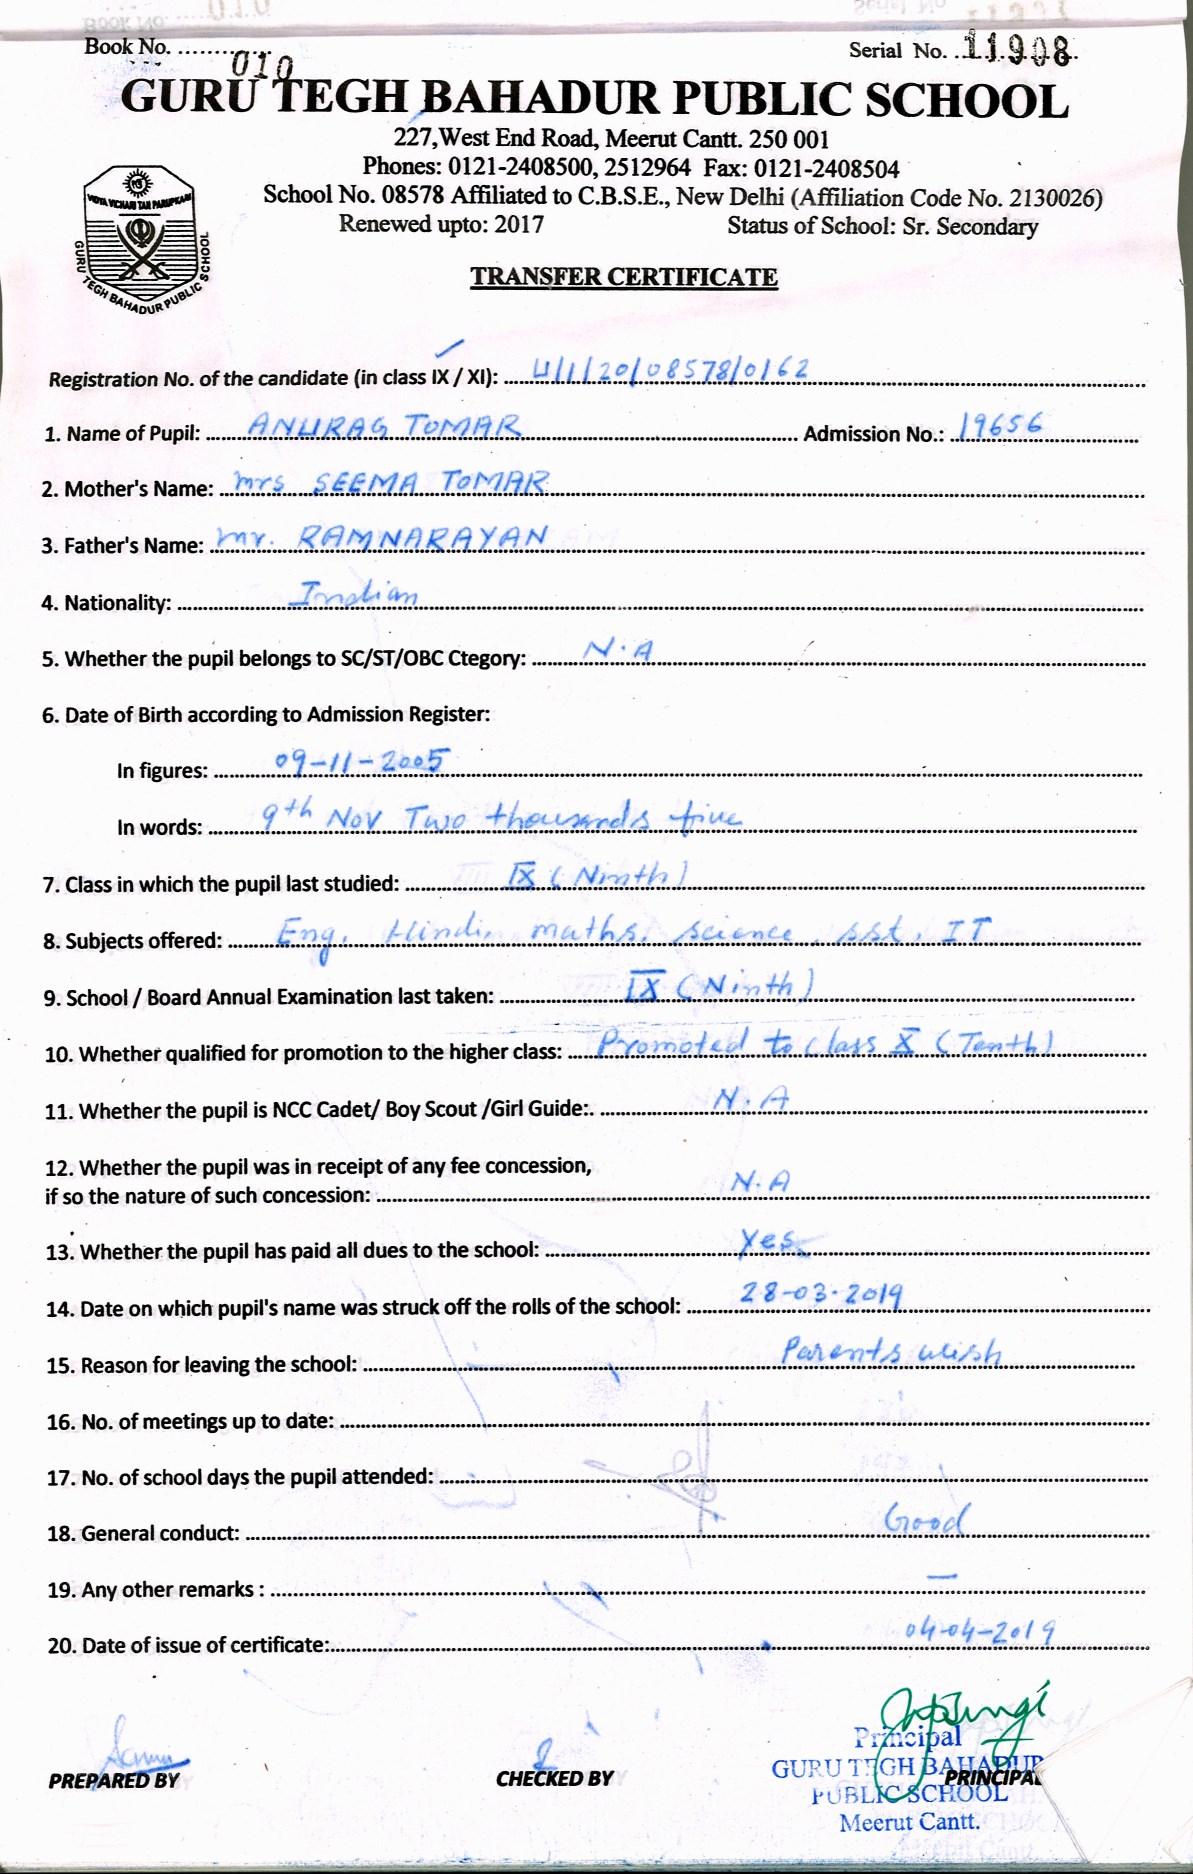 Book No. ..............
010
Serial No. ..11908.
GURU TEGH BAHADUR PUBLIC SCHOOL
227,West End Road, Meerut Cantt. 250 001
Phones: 0121-2408500, 2512964 Fax: 0121-2408504
School No. 08578 Affiliated to C.B.S.E., New Delhi (Affiliation Code No. 2130026)
Renewed upto: 2017 Status of School: Sr. Secondary
VIDYA VICHARI TAN PARUPKARI
GURU TEGH BAHADUR PUBLIC SCHOOL
TRANSFER CERTIFICATE
Registration No. of the candidate (in class IX / XI): U/1/20/08578/0162
1. Name of Pupil: ANURAG TOMAR Admission No.: 19656
2. Mother's Name: mrs SEEMA TOMAR
3. Father's Name: mr. RAMNARAYAN
4. Nationality: Indian
5. Whether the pupil belongs to SC/ST/OBC Ctegory: N.A
6. Date of Birth according to Admission Register:
In figures: 09-11-2005
In words: 9th Nov Two thousands five
7. Class in which the pupil last studied: IX (Ninth)
8. Subjects offered: Eng, Hindi, maths, science, sst, IT
9. School / Board Annual Examination last taken: IX (Ninth)
10. Whether qualified for promotion to the higher class: Promoted to class X (Tenth)
11. Whether the pupil is NCC Cadet/ Boy Scout /Girl Guide:. N.A
12. Whether the pupil was in receipt of any fee concession,
if so the nature of such concession: N.A
13. Whether the pupil has paid all dues to the school: Yes
14. Date on which pupil's name was struck off the rolls of the school: 28-03-2019
15. Reason for leaving the school: Parents wish
16. No. of meetings up to date:
17. No. of school days the pupil attended:
18. General conduct: Good
19. Any other remarks : —
20. Date of issue of certificate: 04-04-2019
PREPARED BY
CHECKED BY
PRINCIPAL
Principal
GURU TEGH BAHADUR
PUBLIC SCHOOL
Meerut Cantt.